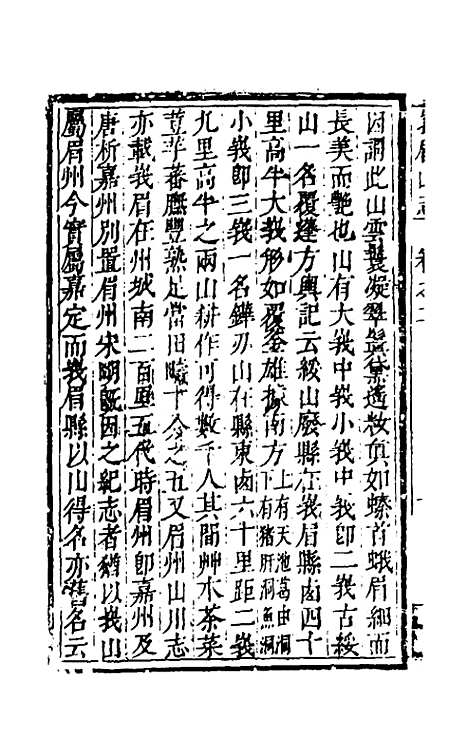 因謂此山雲鬟凝翠鬒黛遙妝真如螓首蛾眉細而
長美而艷也山有大峩中峩小峩中峩卽二峩古綏
山一名覆蓬方輿記云綏山廢縣在峩眉縣西四十
里高半大峩形如覆釜雄據南方上有天池葛由洞下有猪肝洞魚洞
小峩卽三峩一名鏵刃山在縣東西六十里距二峩
九里高半之兩山耕作可得數千人其間艸木茶菜
荳芋蕃膴豐熟足當旧 十 之五又眉州山川志
亦載峩眉在州城南二百里五代時眉州卽嘉州及
唐析嘉州別置眉州宋明旣因之紀志者猶以峩山
屬眉州今實屬嘉定而峩眉縣以山得名亦舊名云
峩眉山志
卷之二